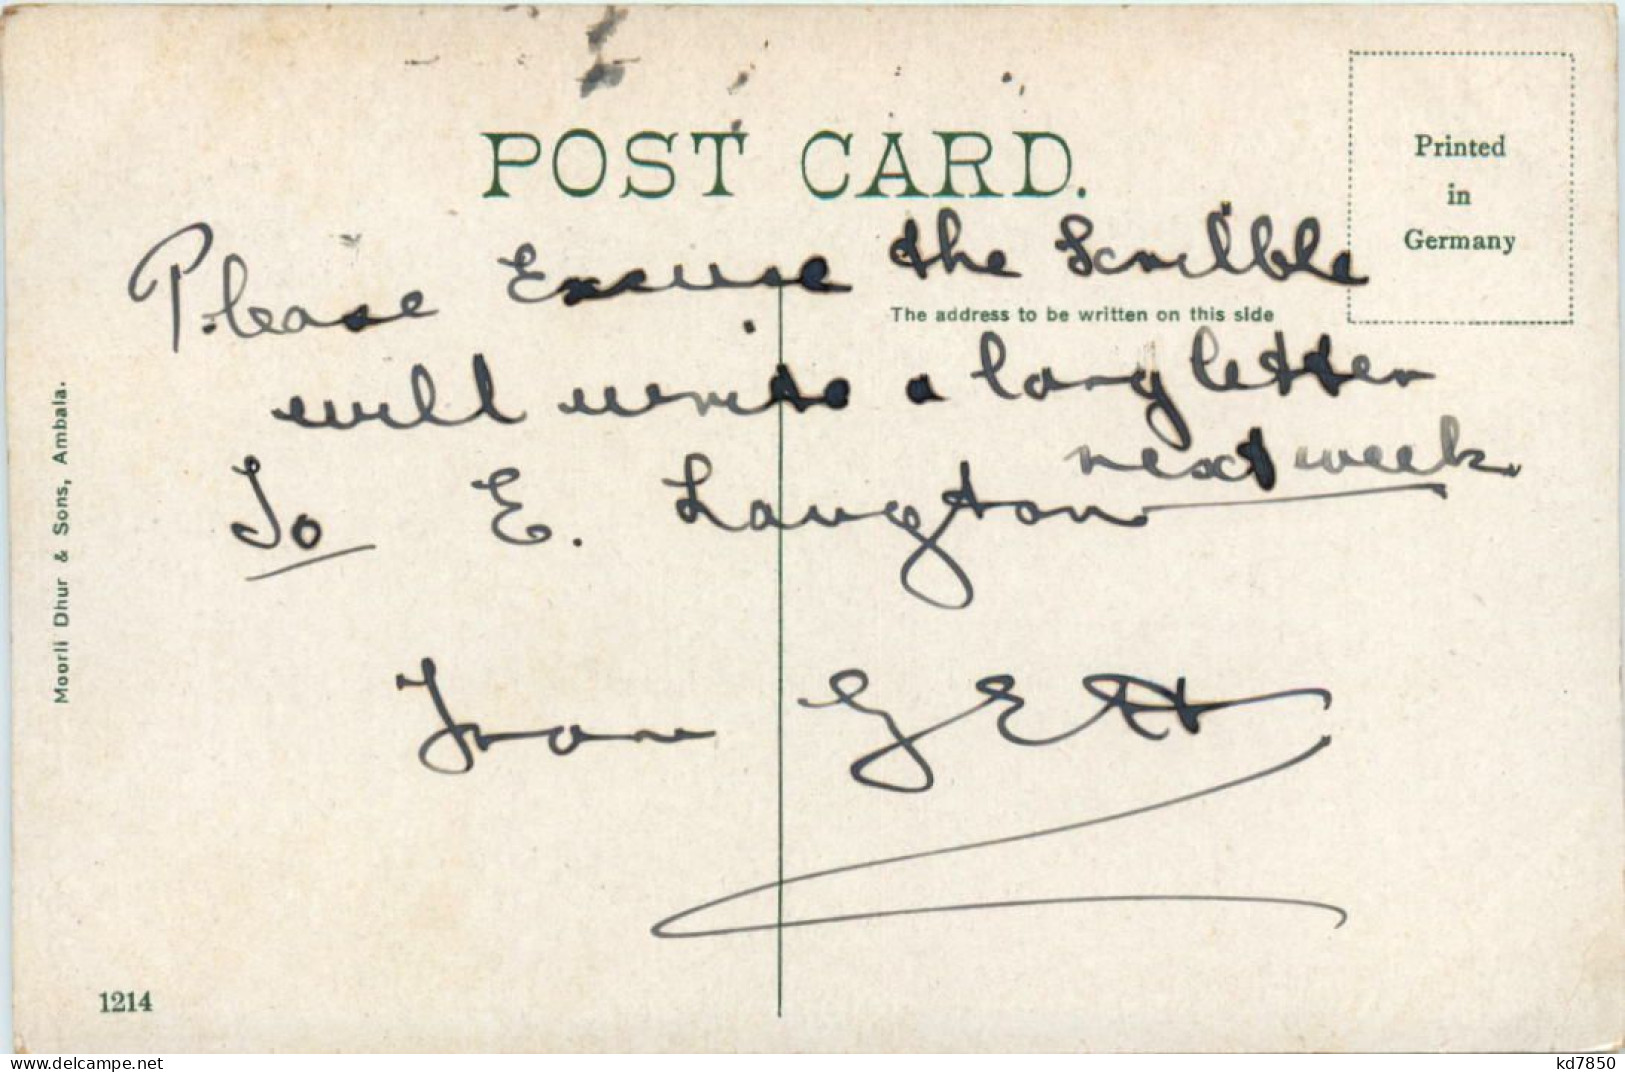 POST CARD.
Printed
in
Germany
Please Excuse the Scribble
The address to be written on this side
will write a long letter
next week.
To E. Langton
From G Ett
Moorli Dhur & Sons, Ambala.
1214
www.delcampe.net
kd7850